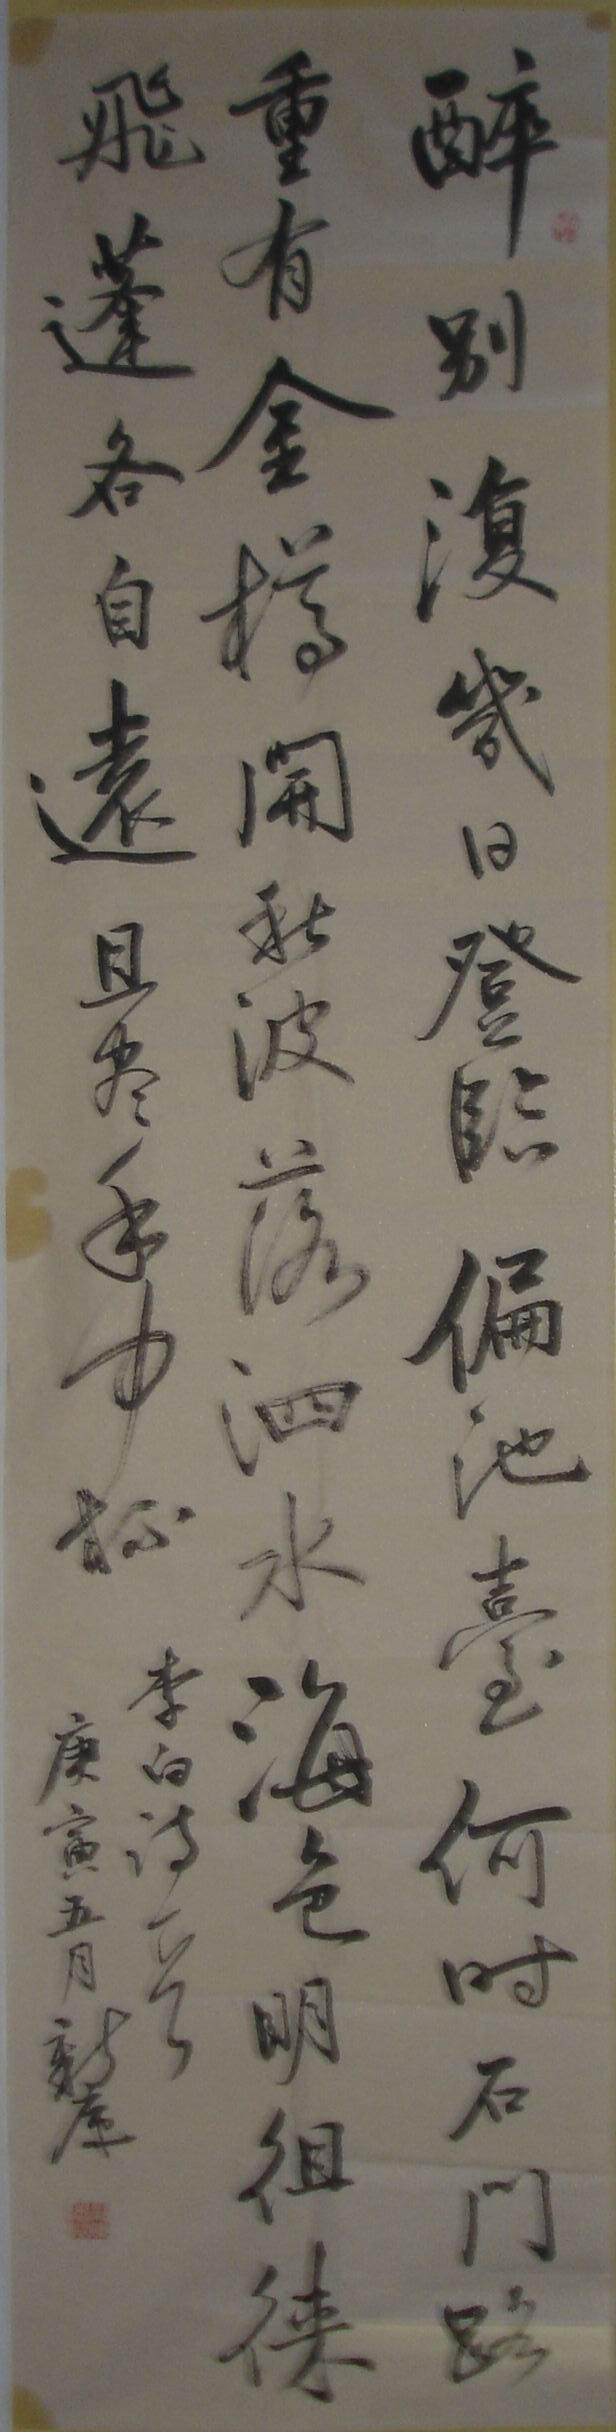 醉别復幾日登臨偏池臺何时石門路
重有金樽開秋波落泗水海色明徂徠
飛蓬各自遠且尽手中杯
李白诗一首
庚寅五月